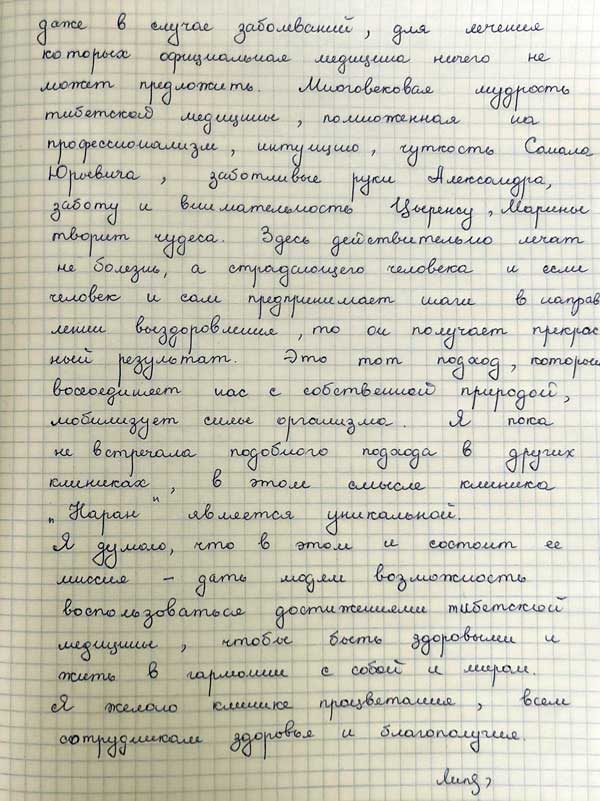 даже в случае заболеваний, для лечения
которых официальная медицина ничего не
может предложить. Многовековая мудрость
тибетской медицины, помноженная на
профессионализм, интуицию, чуткость Самала
Юрьевича, заботливые руки Александра,
заботу и внимательность Цыренсу, Марины
творит чудеса. Здесь действительно лечат
не болезнь, а страдающего человека и если
человек и сам предпринимает шаги в направ
лении выздоровления, то он получает прекрас
ный результат. Это тот подход, который
воссоединяет нас с собственной природой,
мобилизует силы организма. Я пока
не встречала подобного подхода в других
клиниках, в этом смысле клиника
„Наран" является уникальной.
Я думаю, что в этом и состоит ее
миссия – дать людям возможность
воспользоваться достижениями тибетской
медицины, чтобы быть здоровыми и
жить в гармонии с собой и миром.
Я желаю клинике процветания, всем
сотрудникам здоровья и благополучия.